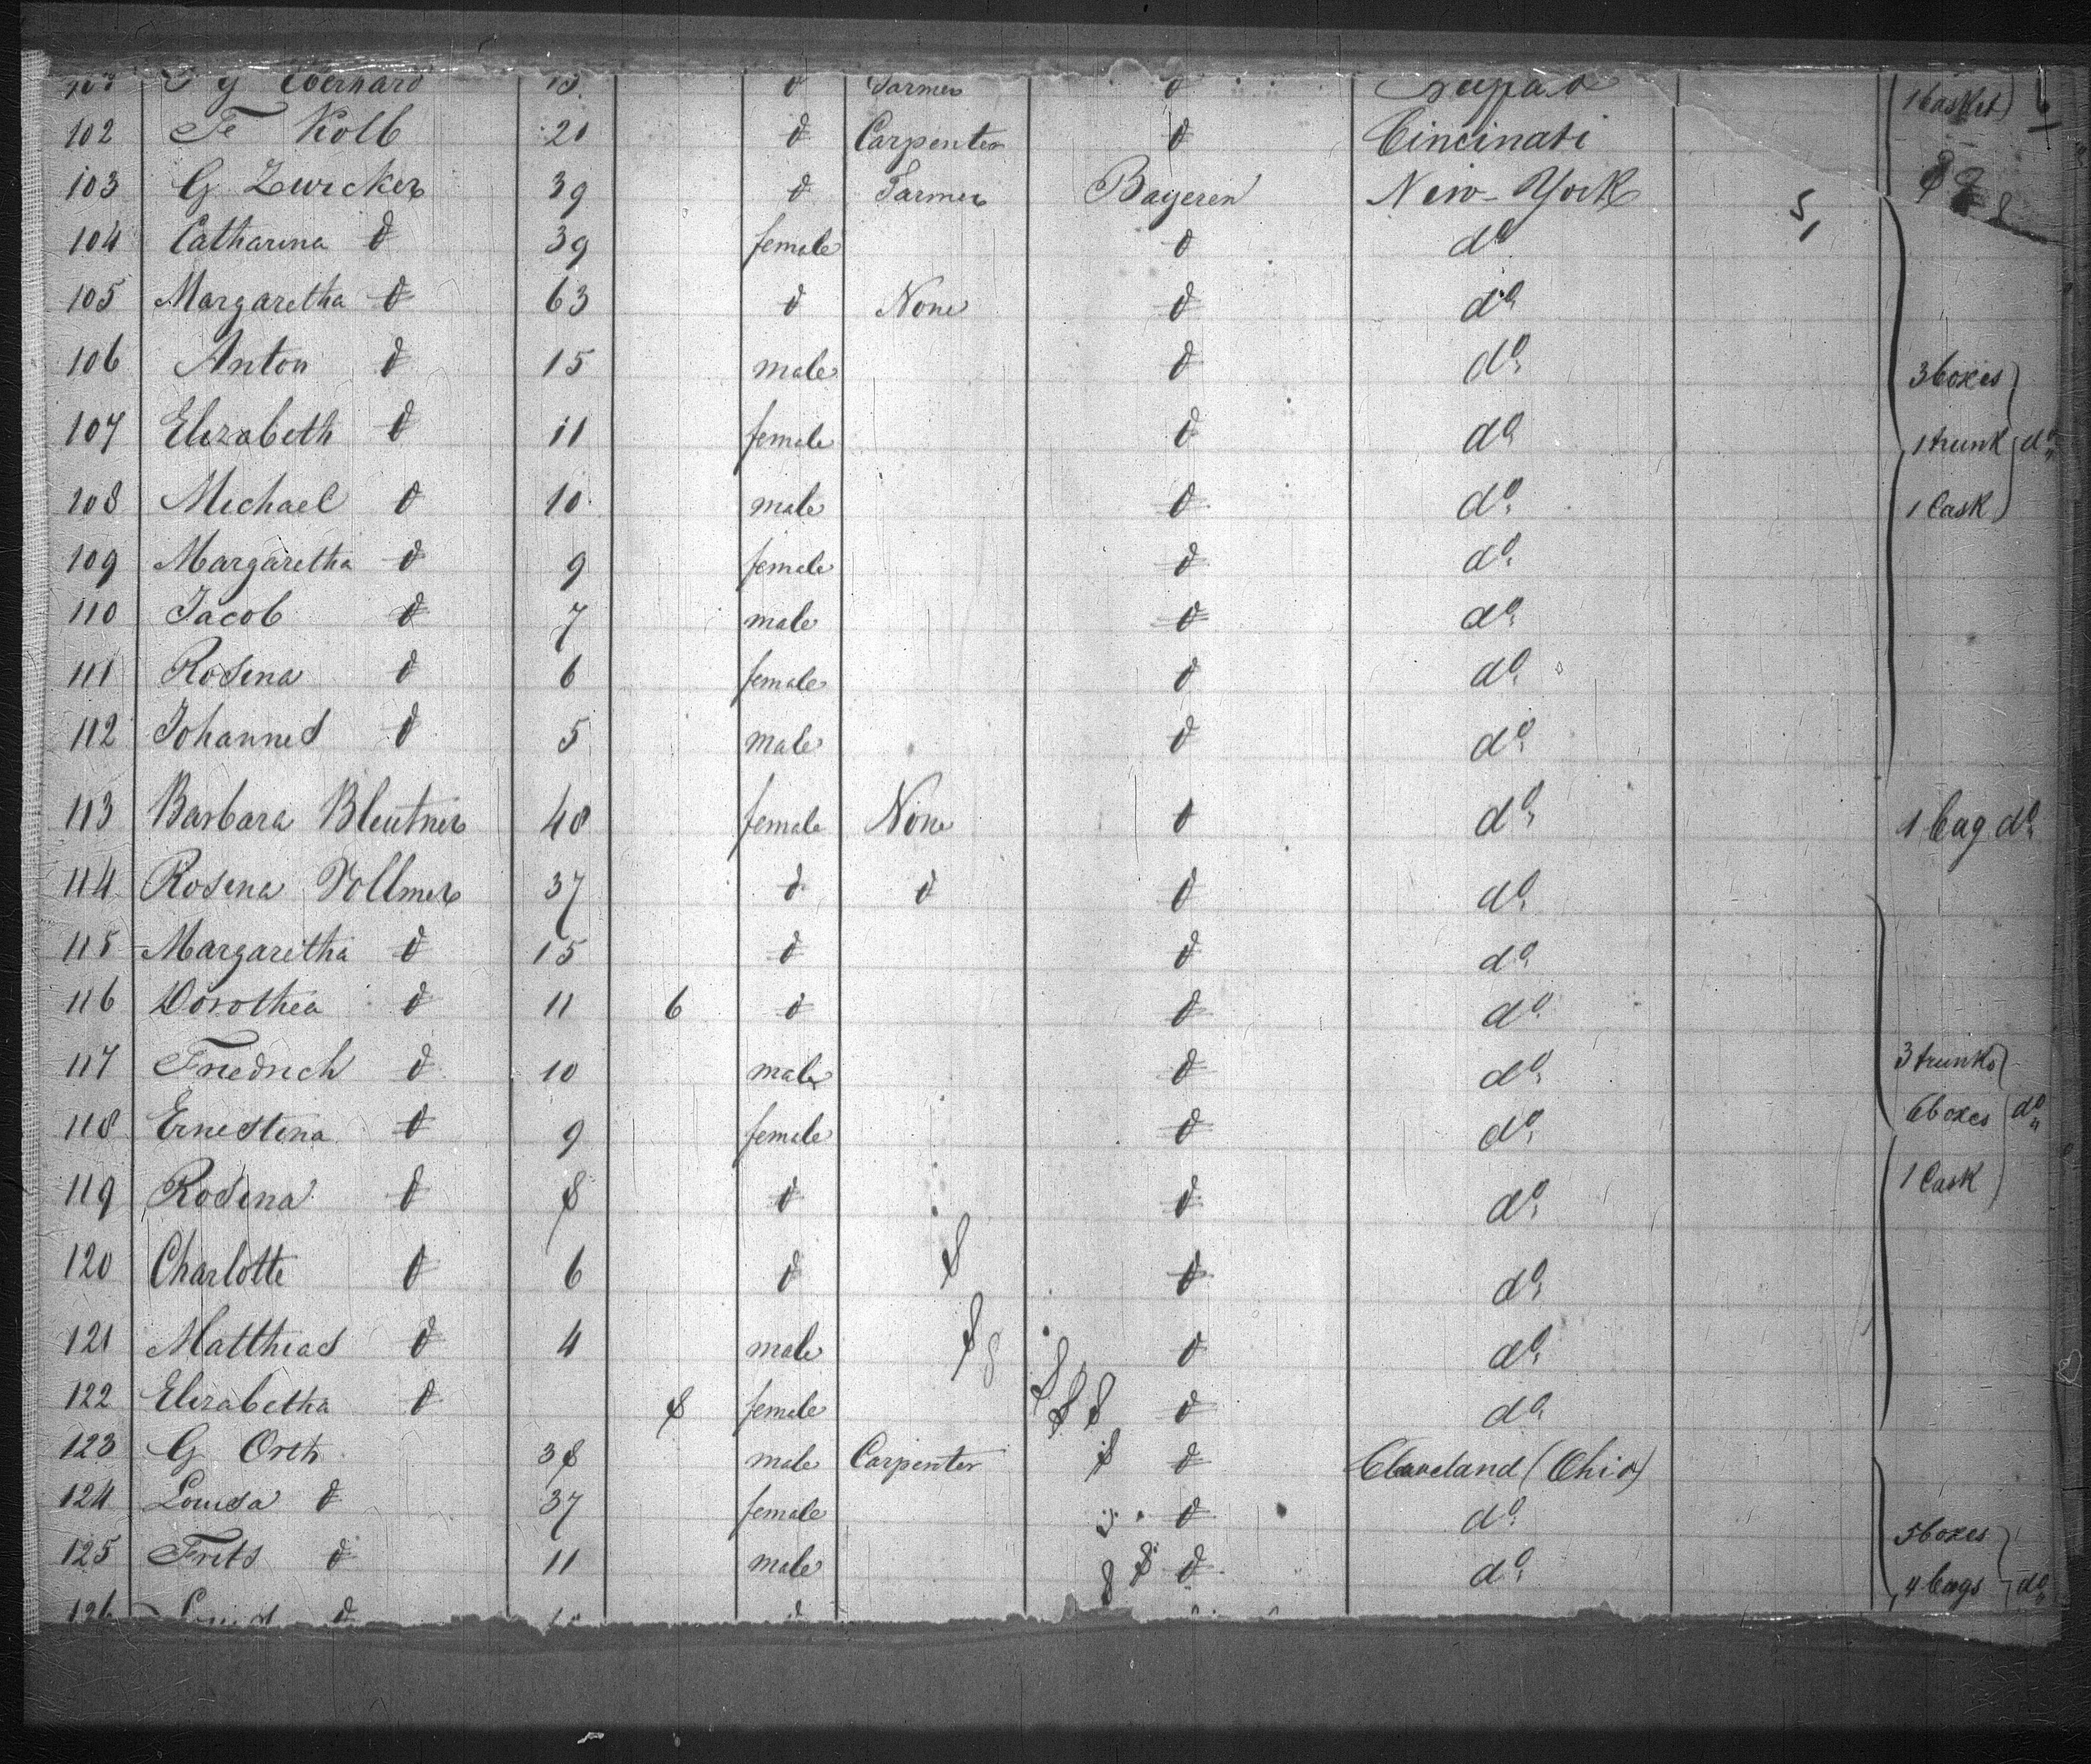 Eberhard đ Farmer đ 1 basket
102 Fr Kolb 20 đ Carpenter đ Cincinati
103 G Zwicker 39 đ Farmer Bayeren New-York
104 Catharina đ 39 female đ do
105 Margaretha đ 63 đ None đ do
106 Anton đ 15 male đ do 3 boxes
107 Elizabeth đ 11 female đ do 1 trunk do
108 Michael đ 10 male đ do 1 Cask
109 Margaretha đ 9 female đ do
110 Jacob đ 7 male đ do
111 Rosina đ 6 female đ do
112 Johannes đ 5 male đ do
113 Barbara Bleutner 48 female None đ do 1 bag do
114 Rosina Vollmer 37 đ đ đ do
115 Margaretha đ 15 đ đ do
116 Dorothea đ 11 6 đ đ do
117 Friedrich đ 10 male đ do 3 trunks
118 Ernestina đ 9 female đ do 6 boxes do
119 Rosina đ 8 đ đ do 1 Cask
120 Charlotte đ 6 đ đ do
121 Matthias đ 4 male đ do
122 Elizabetha đ 8 female đ do
123 G Orth 38 male Carpenter đ Claveland (Ohio)
124 Louisa đ 37 female đ do
125 Frits đ 11 male đ do 5 boxes
126 đ đ 4 bags do